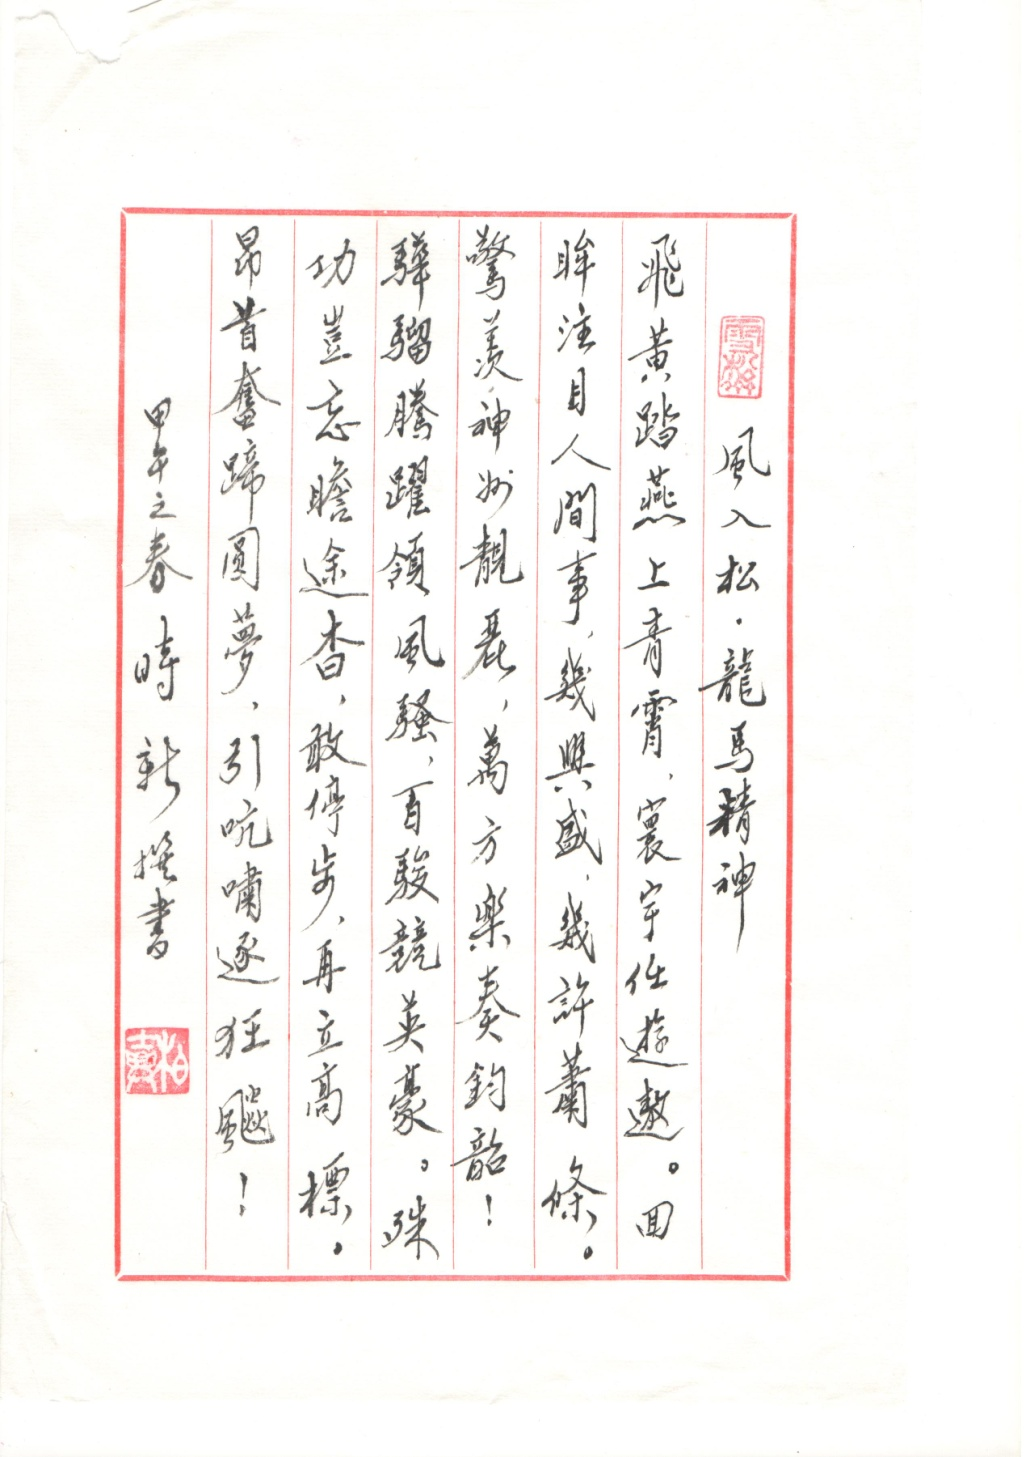 風入松·龍馬精神
飛黃踏燕上青霄、寰宇任遊遨。回
眸注目人間事、幾興盛、幾許蕭條。
驚羨神州靚麗，萬方樂奏鈞韶！
驊騮騰躍領風騷，百駿競英豪。殊
功豈忘瞻途杳，敢停步，再立高標。
昂首奮蹄圓夢，引吭嘯逐狂飈！
甲午之春 時新撰書